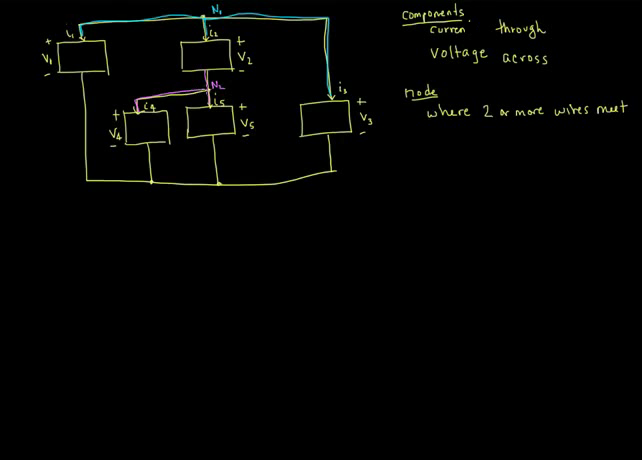 N₁
i₁
i₂
+
V₁
-
+
V₂
-
N₂
i₄
i₅
i₃
+
V₄
-
+
V₅
-
+
V₃
-
Components
Curren through
Voltage across
node
where 2 or more wires meet